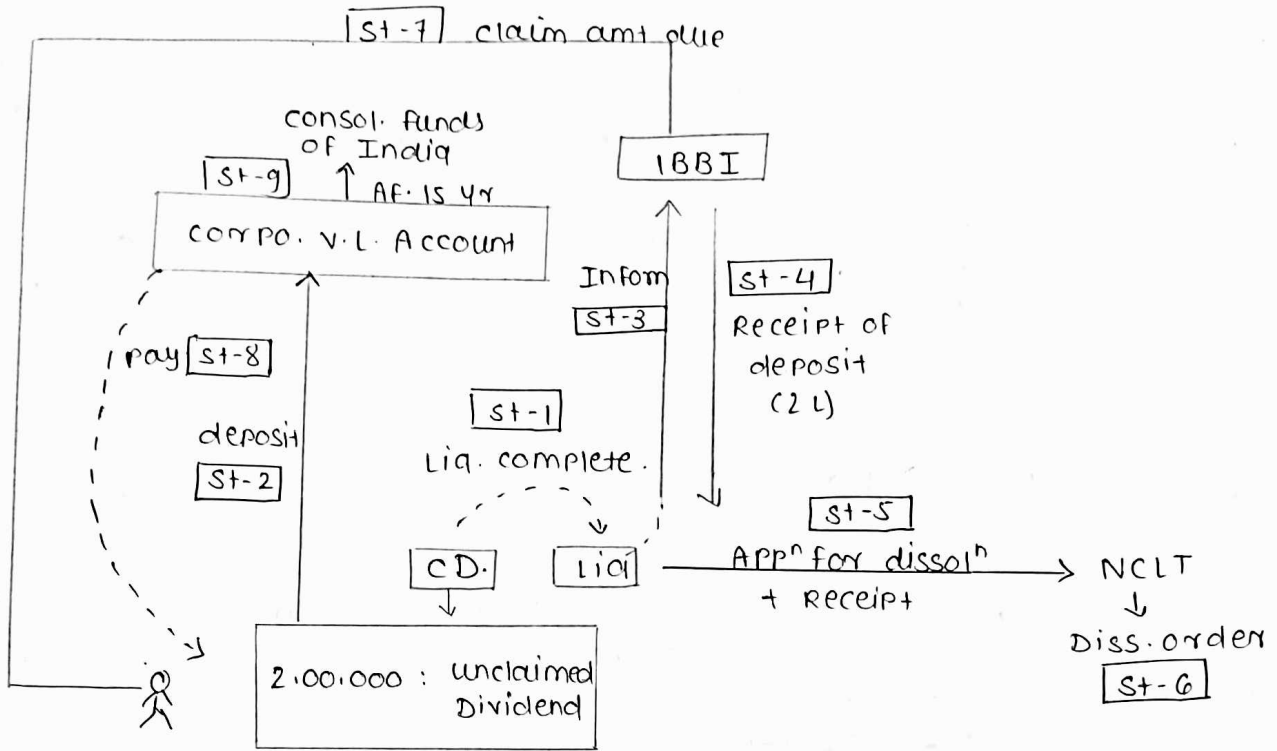 St-7 claim amt due
consol. funds
of India
St-9
↑ AF. 15 yr
corpo. V.L. Account
IBBI
Infom
St-3
St-4
Receipt of
deposit
(2 L)
pay St-8
deposit
St-2
St-1
Liq. complete.
CD.
Liq
St-5
Appⁿ for dissolⁿ
+ Receipt
NCLT
Diss. order
St-6
2,00,000 : unclaimed
Dividend